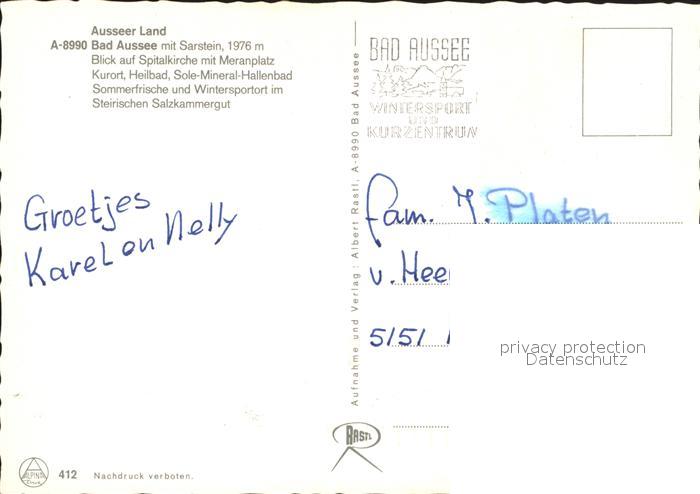 Ausseer Land
A-8990 Bad Aussee mit Sarstein, 1976 m
Blick auf Spitalkirche mit Meranplatz
Kurort, Heilbad, Sole-Mineral-Hallenbad
Sommerfrische und Wintersportort im
Steirischen Salzkammergut
Groetjes
Karel en Nelly
412 Nachdruck verboten.
ALPINA
Aufnahme und Verlag: Albert Rastl, A-8990 Bad Aussee
RASTL
BAD AUSSEE
WINTERSPORT
UND
KURZENTRUM
fam. 7. Platen
v. Hee
5151
privacy protection
Datenschutz